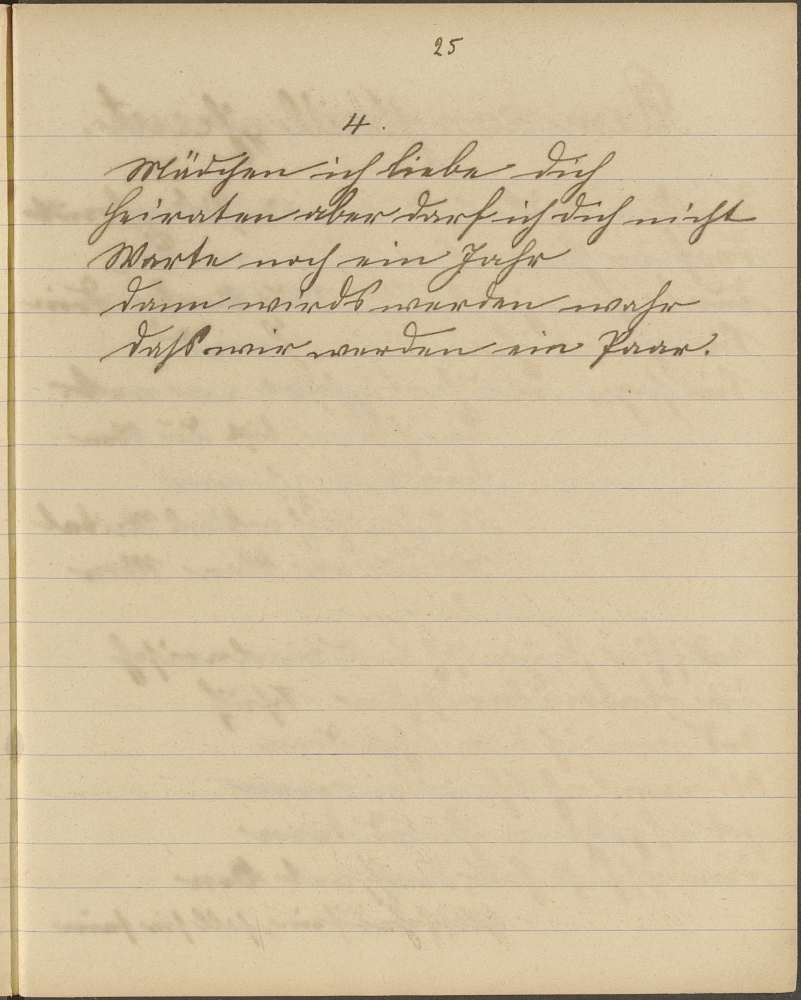 25
4.
Mädchen ich liebe dich
heiraten aber darf ich dich nicht
Warte noch ein Jahr
dann wirds werden wahr
daß wir werden ein Paar.